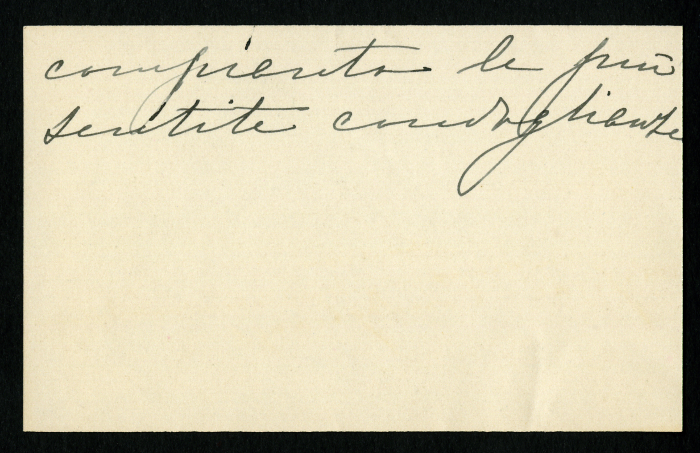 compianto le più
sentite condoglianze